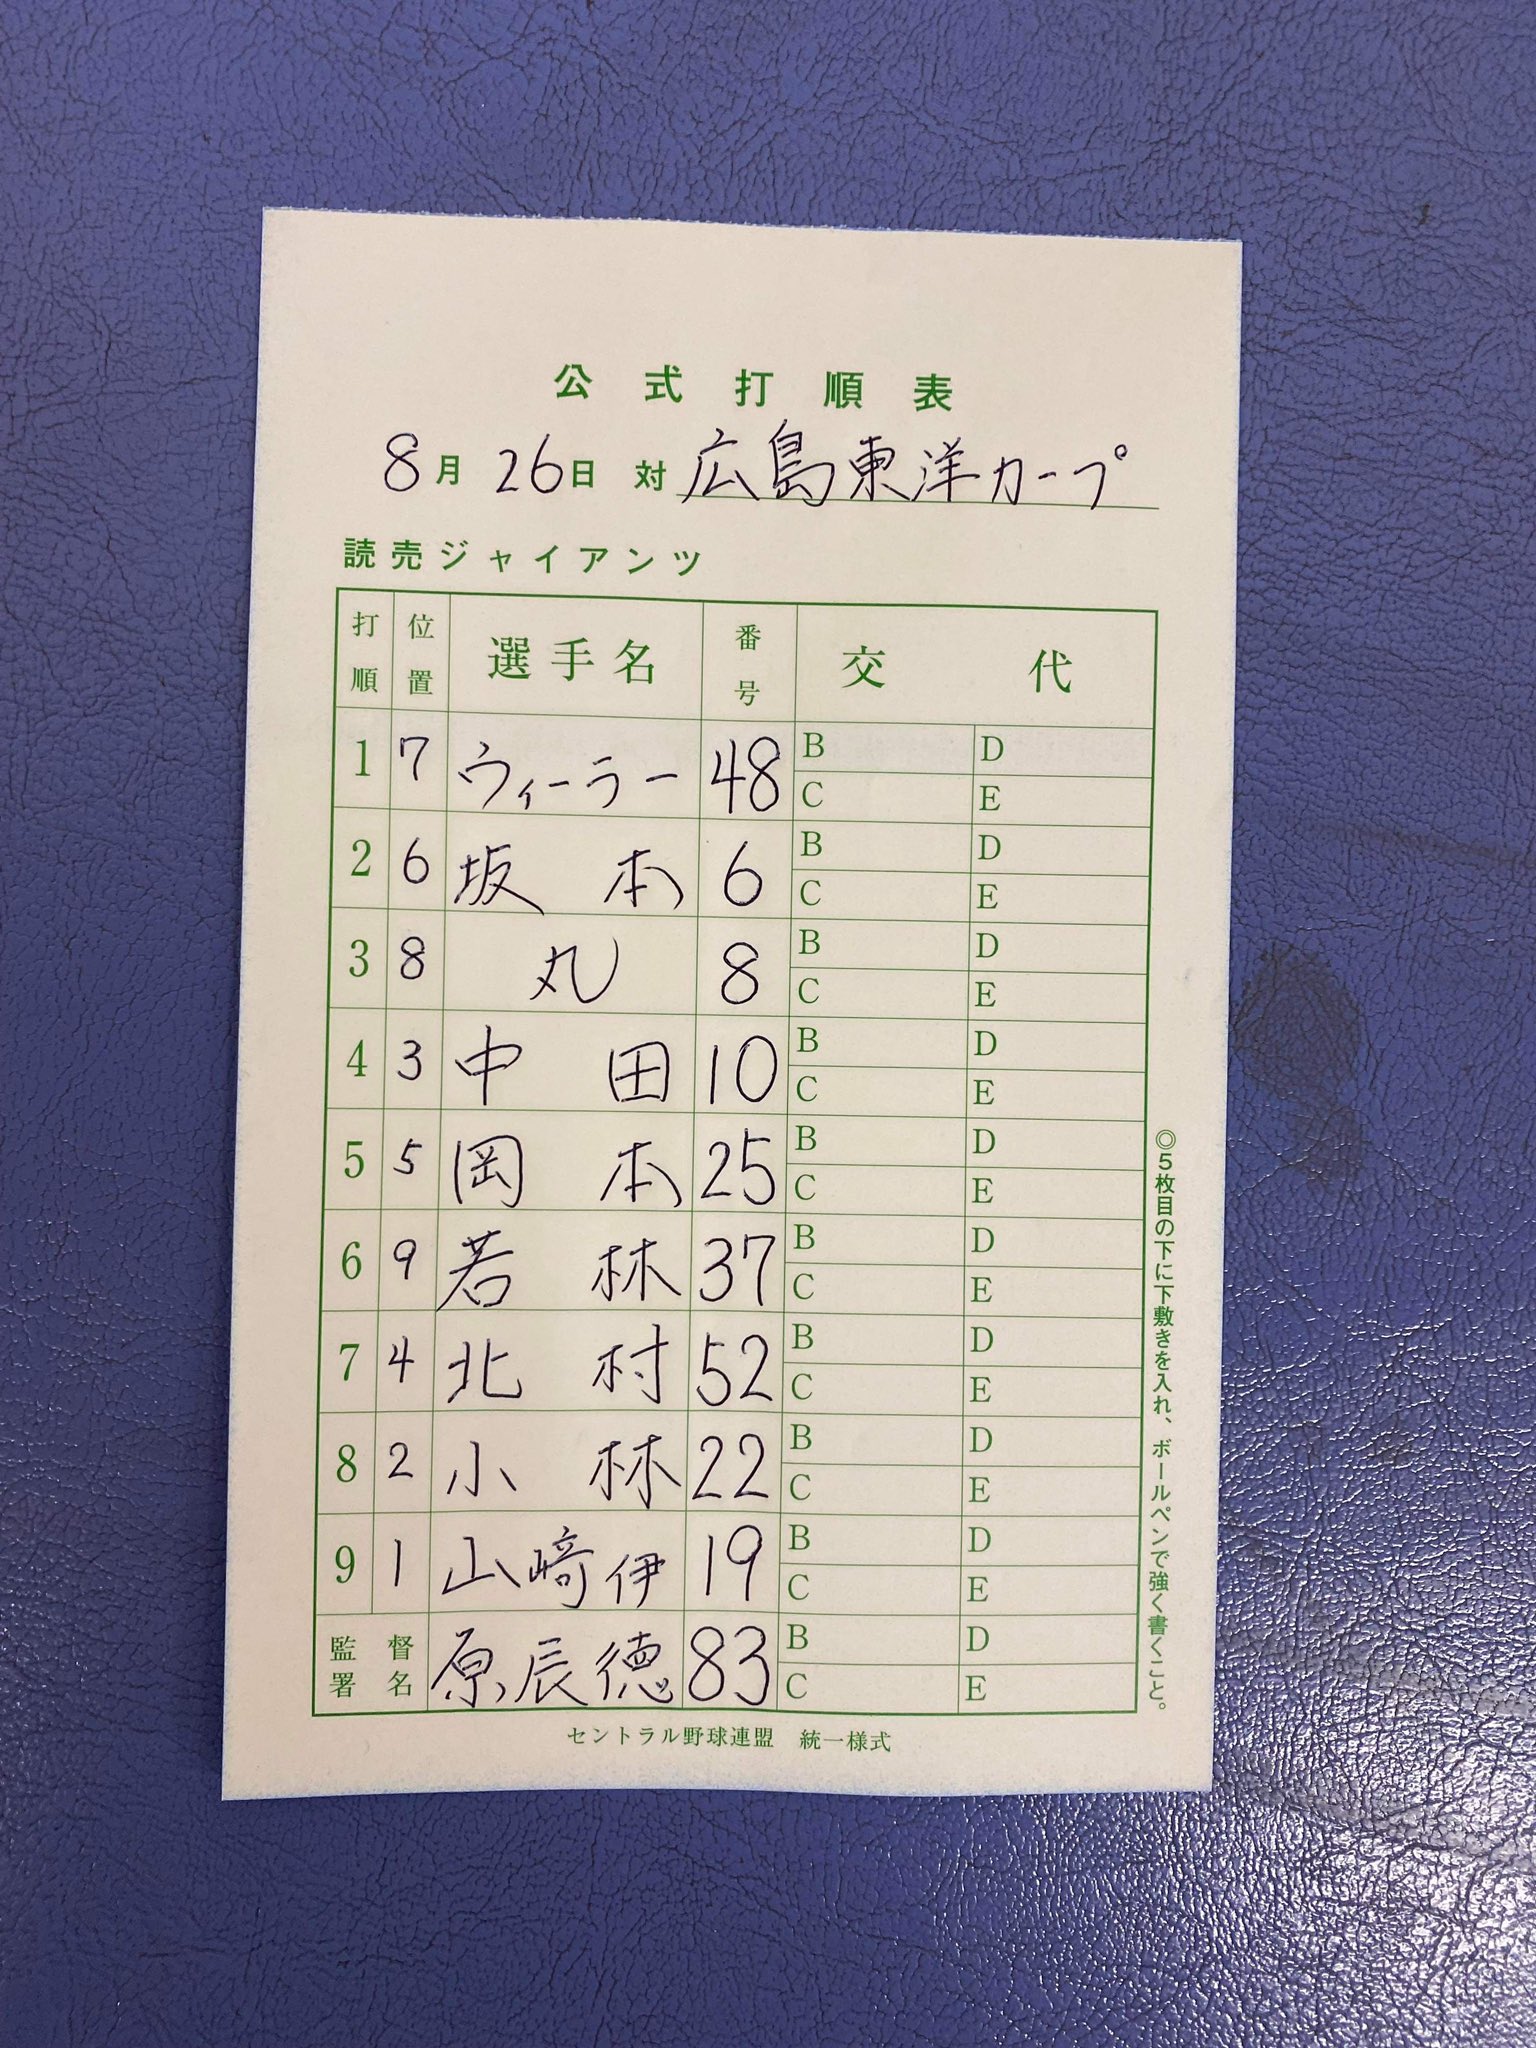 公式打順表
8月 26日 対 広島東洋カープ
読売ジャイアンツ
打順 位置 選手名 番号 交代
1 7 ウィーラー 48 B D
C E
2 6 坂本 6 B D
C E
3 8 丸 8 B D
C E
4 3 中田 10 B D
C E
5 5 岡本 25 B D
C E
6 9 若林 37 B D
C E
7 4 北村 52 B D
C E
8 2 小林 22 B D
C E
9 1 山﨑伊 19 B D
C E
監督署名 原辰徳 83 B D
C E
セントラル野球連盟 統一様式
◎5枚目の下に下敷きを入れ、ボールペンで強く書くこと。